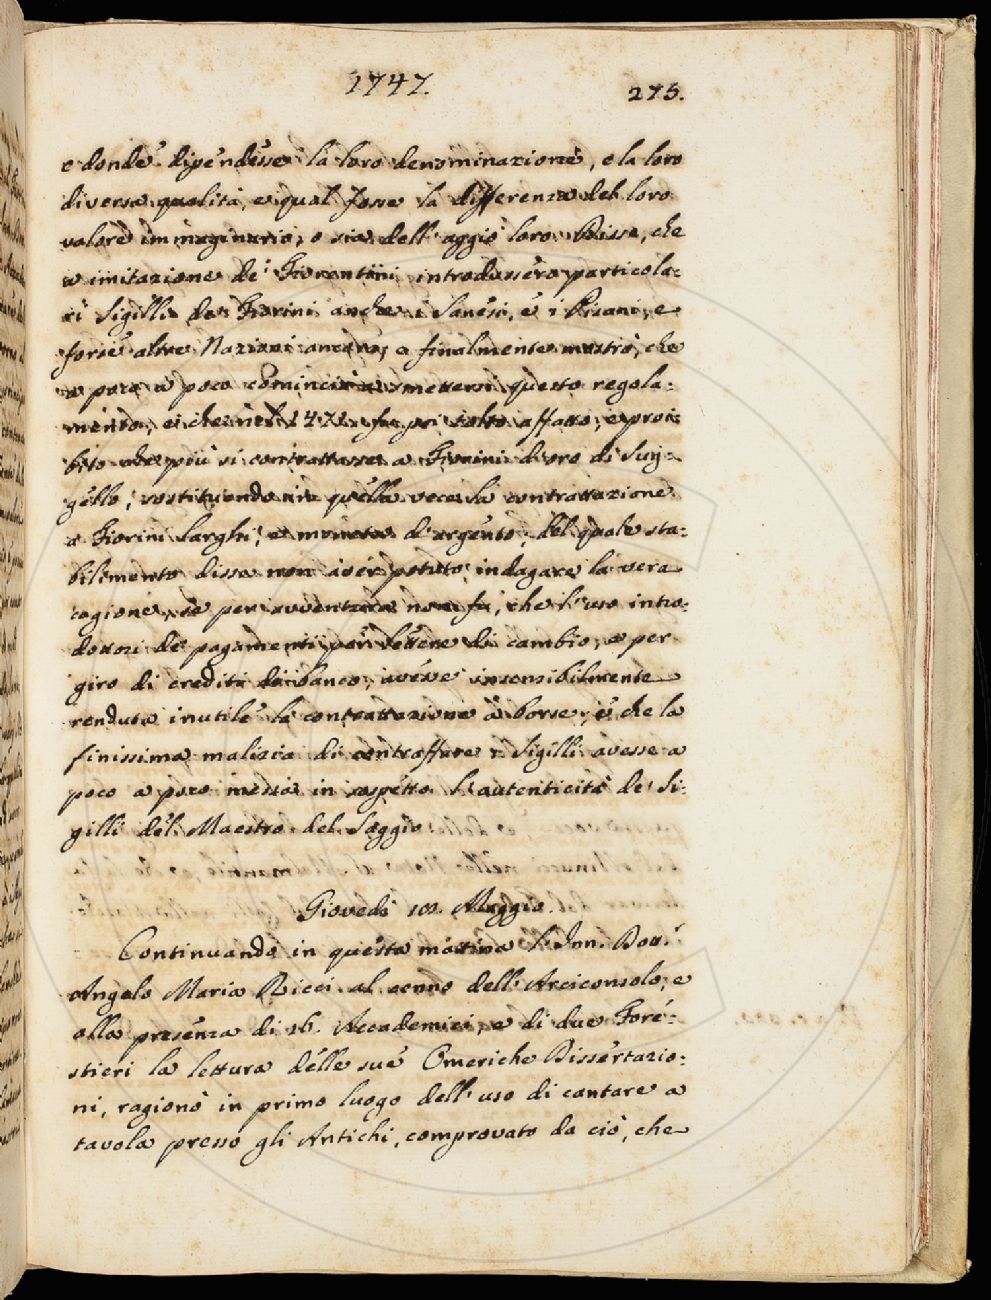 1747.
275.
e donde dipendesse la loro denominazione, e la loro
diversa qualità, e qual fosse la differenza del loro
valore immaginario, o sia dell'aggio loro. Disse, che
a imitazione de' Fiorentini introdussero particola=
ri Sigilli de' Fiorini anche i Sanesi, e i Pisani, e
forse altre Nazioni ancora; e finalmente mostrò, che
a poco a poco cominciò a smettersi questo regola=
mento, e che nel 1471. fu poi tolto affatto, e proi=
bito che più si contrattasse a Fiorini d'oro di Sug=
gello, sostituendo in quella vece la contrattazione
a Fiorini Larghi, e moneta d'argento; del quale sta=
bilimento disse non aver potuto indagare la vera
cagione, se per avventura non fu, che l'uso intro=
dottosi de' pagamenti per lettere di cambio, e per
giro di crediti di banco, avesse insensibilmente
renduta inutile la contrattazione a borse; e che la
finissima malizia di contraffare i Sigilli avesse a
poco a poco messa in sospetto l'autenticità de' Si=
gilli del Maestro del Saggio.
Giovedì 18. Maggio.
Continuando in questa mattina l'Inn. Dott.
Angelo Maria Ricci al cenno dell'Arciconsolo, e
alla presenza di 16. Accademici, e di due Fore=
stieri la lettura delle sue Omeriche Dissertazio=
ni, ragionò in primo luogo dell'uso di cantare a
tavola presso gli Antichi, comprovato da ciò, che